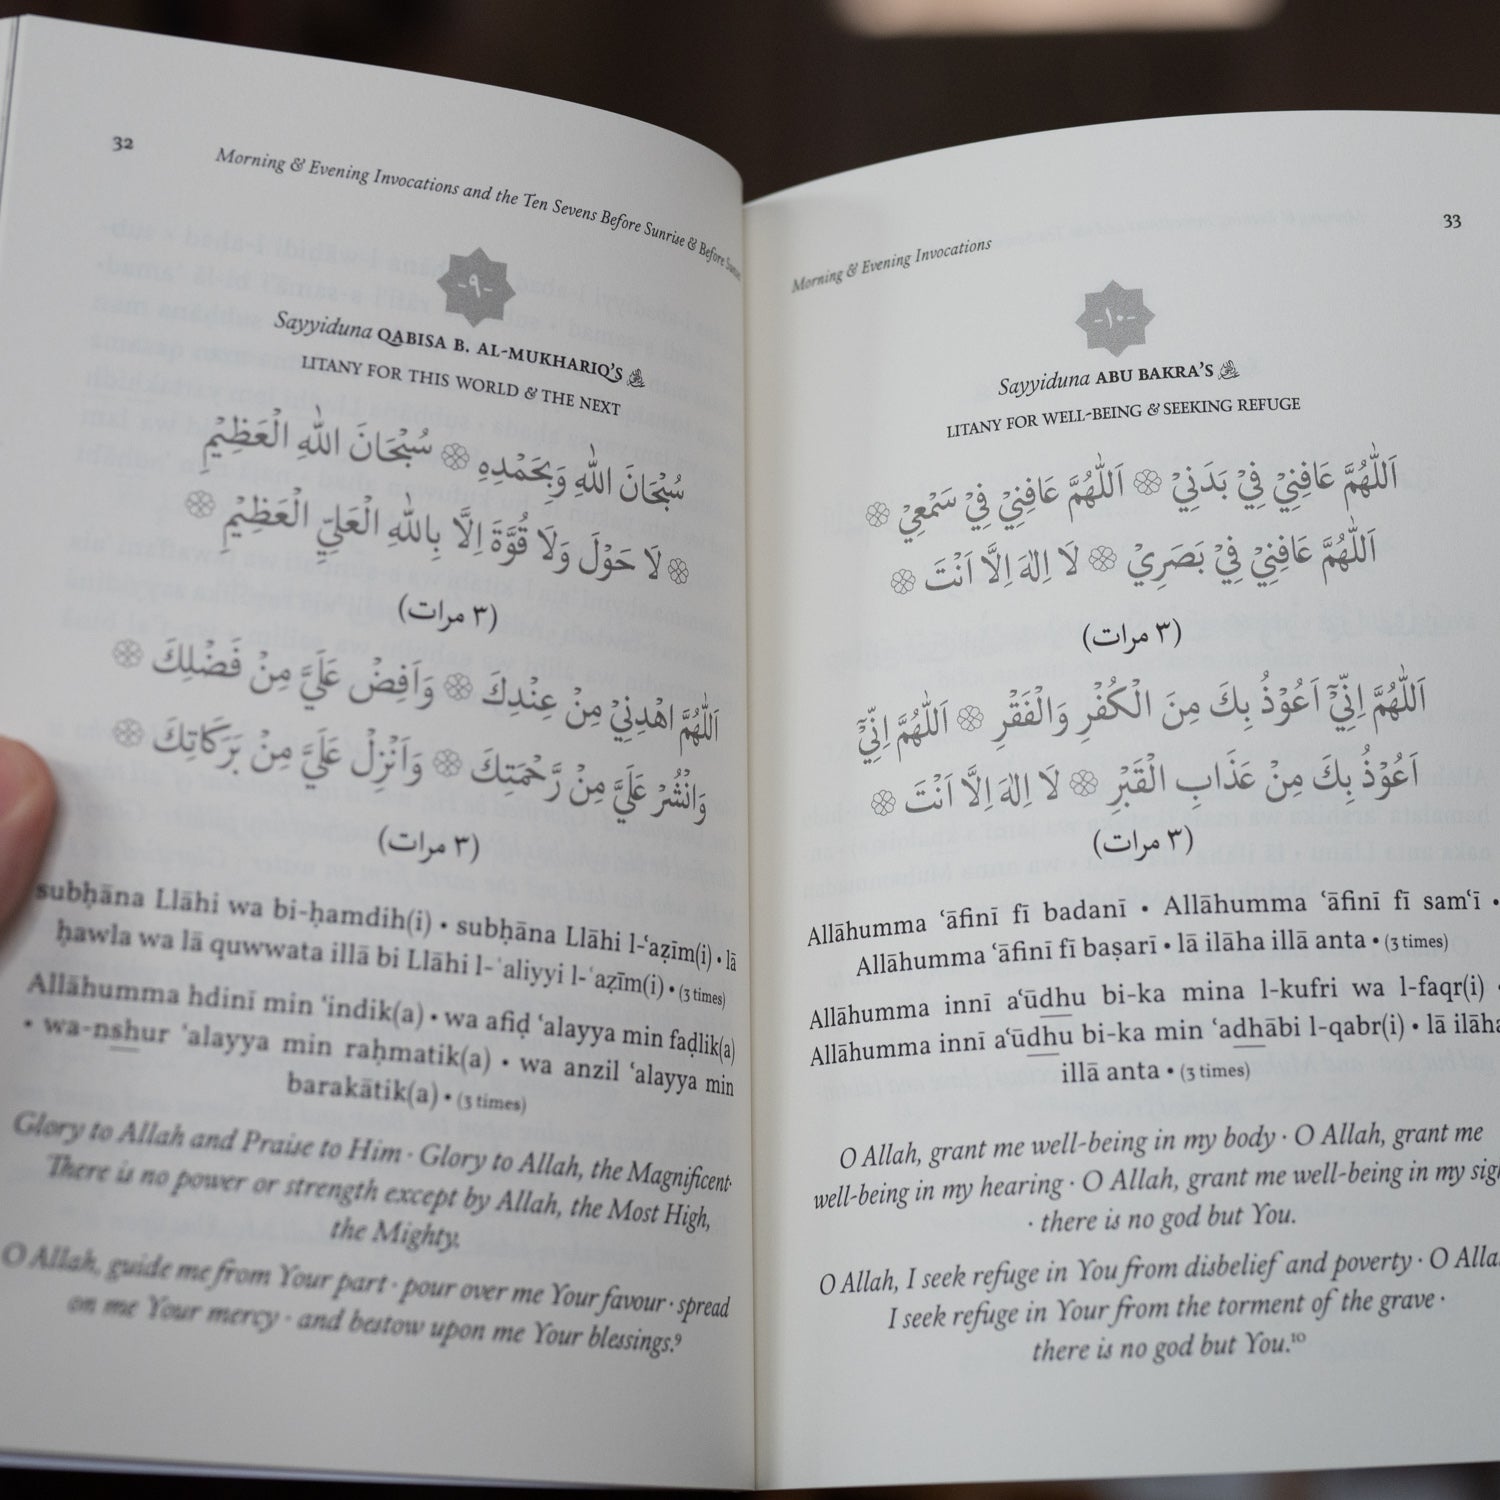 32
Morning & Evening Invocations and the Ten Sevens Before Sunrise & Before
-٩-
Sayyiduna QABISA B. AL-MUKHARIQ'S
LITANY FOR THIS WORLD & THE NEXT
سُبْحَانَ اللّٰهِ وَبِحَمْدِهِ ۞ سُبْحَانَ اللّٰهِ الْعَظِيْمِ
۞ لَا حَوْلَ وَلَا قُوَّةَ اِلَّا بِاللّٰهِ الْعَلِيِّ الْعَظِيْمِ ۞
(٣ مرات)
اَللّٰهُمَّ اهْدِنِيْ مِنْ عِنْدِكَ ۞ وَاَفِضْ عَلَيَّ مِنْ فَضْلِكَ ۞
وَانْشُرْ عَلَيَّ مِنْ رَّحْمَتِكَ ۞ وَاَنْزِلْ عَلَيَّ مِنْ بَرَكَاتِكَ ۞
(٣ مرات)
subḥāna Llāhi wa bi-ḥamdih(i) • subḥāna Llāhi l-ʿaẓīm(i) • lā
ḥawla wa lā quwwata illā bi Llāhi l-ʿaliyyi l-ʿaẓīm(i) • (3 times)
Allāhumma hdinī min ʿindik(a) • wa afiḍ ʿalayya min faḍlik(a)
• wa-nshur ʿalayya min raḥmatik(a) • wa anzil ʿalayya min
barakātik(a) • (3 times)
Glory to Allah and Praise to Him · Glory to Allah, the Magnificent·
There is no power or strength except by Allah, the Most High,
the Mighty.
O Allah, guide me from Your part · pour over me Your favour · spread
on me Your mercy · and bestow upon me Your blessings.⁹
33
Morning & Evening Invocations
-١٠-
Sayyiduna ABU BAKRA'S
LITANY FOR WELL-BEING & SEEKING REFUGE
اَللّٰهُمَّ عَافِنِيْ فِيْ بَدَنِيْ ۞ اَللّٰهُمَّ عَافِنِيْ فِيْ سَمْعِيْ ۞
اَللّٰهُمَّ عَافِنِيْ فِيْ بَصَرِيْ ۞ لَا اِلٰهَ اِلَّا اَنْتَ ۞
(٣ مرات)
اَللّٰهُمَّ اِنِّيْٓ اَعُوْذُ بِكَ مِنَ الْكُفْرِ وَالْفَقْرِ ۞ اَللّٰهُمَّ اِنِّيْٓ
اَعُوْذُ بِكَ مِنْ عَذَابِ الْقَبْرِ ۞ لَا اِلٰهَ اِلَّا اَنْتَ ۞
(٣ مرات)
Allāhumma ʿāfinī fī badanī • Allāhumma ʿāfinī fī samʿī •
Allāhumma ʿāfinī fī baṣarī • lā ilāha illā anta • (3 times)
Allāhumma innī aʿūdhu bi-ka mina l-kufri wa l-faqr(i) •
Allāhumma innī aʿūdhu bi-ka min ʿadhābi l-qabr(i) • lā ilāha
illā anta • (3 times)
O Allah, grant me well-being in my body · O Allah, grant me
well-being in my hearing · O Allah, grant me well-being in my
· there is no god but You.
O Allah, I seek refuge in You from disbelief and poverty · O
I seek refuge in Your from the torment of the grave ·
there is no god but You.¹⁰